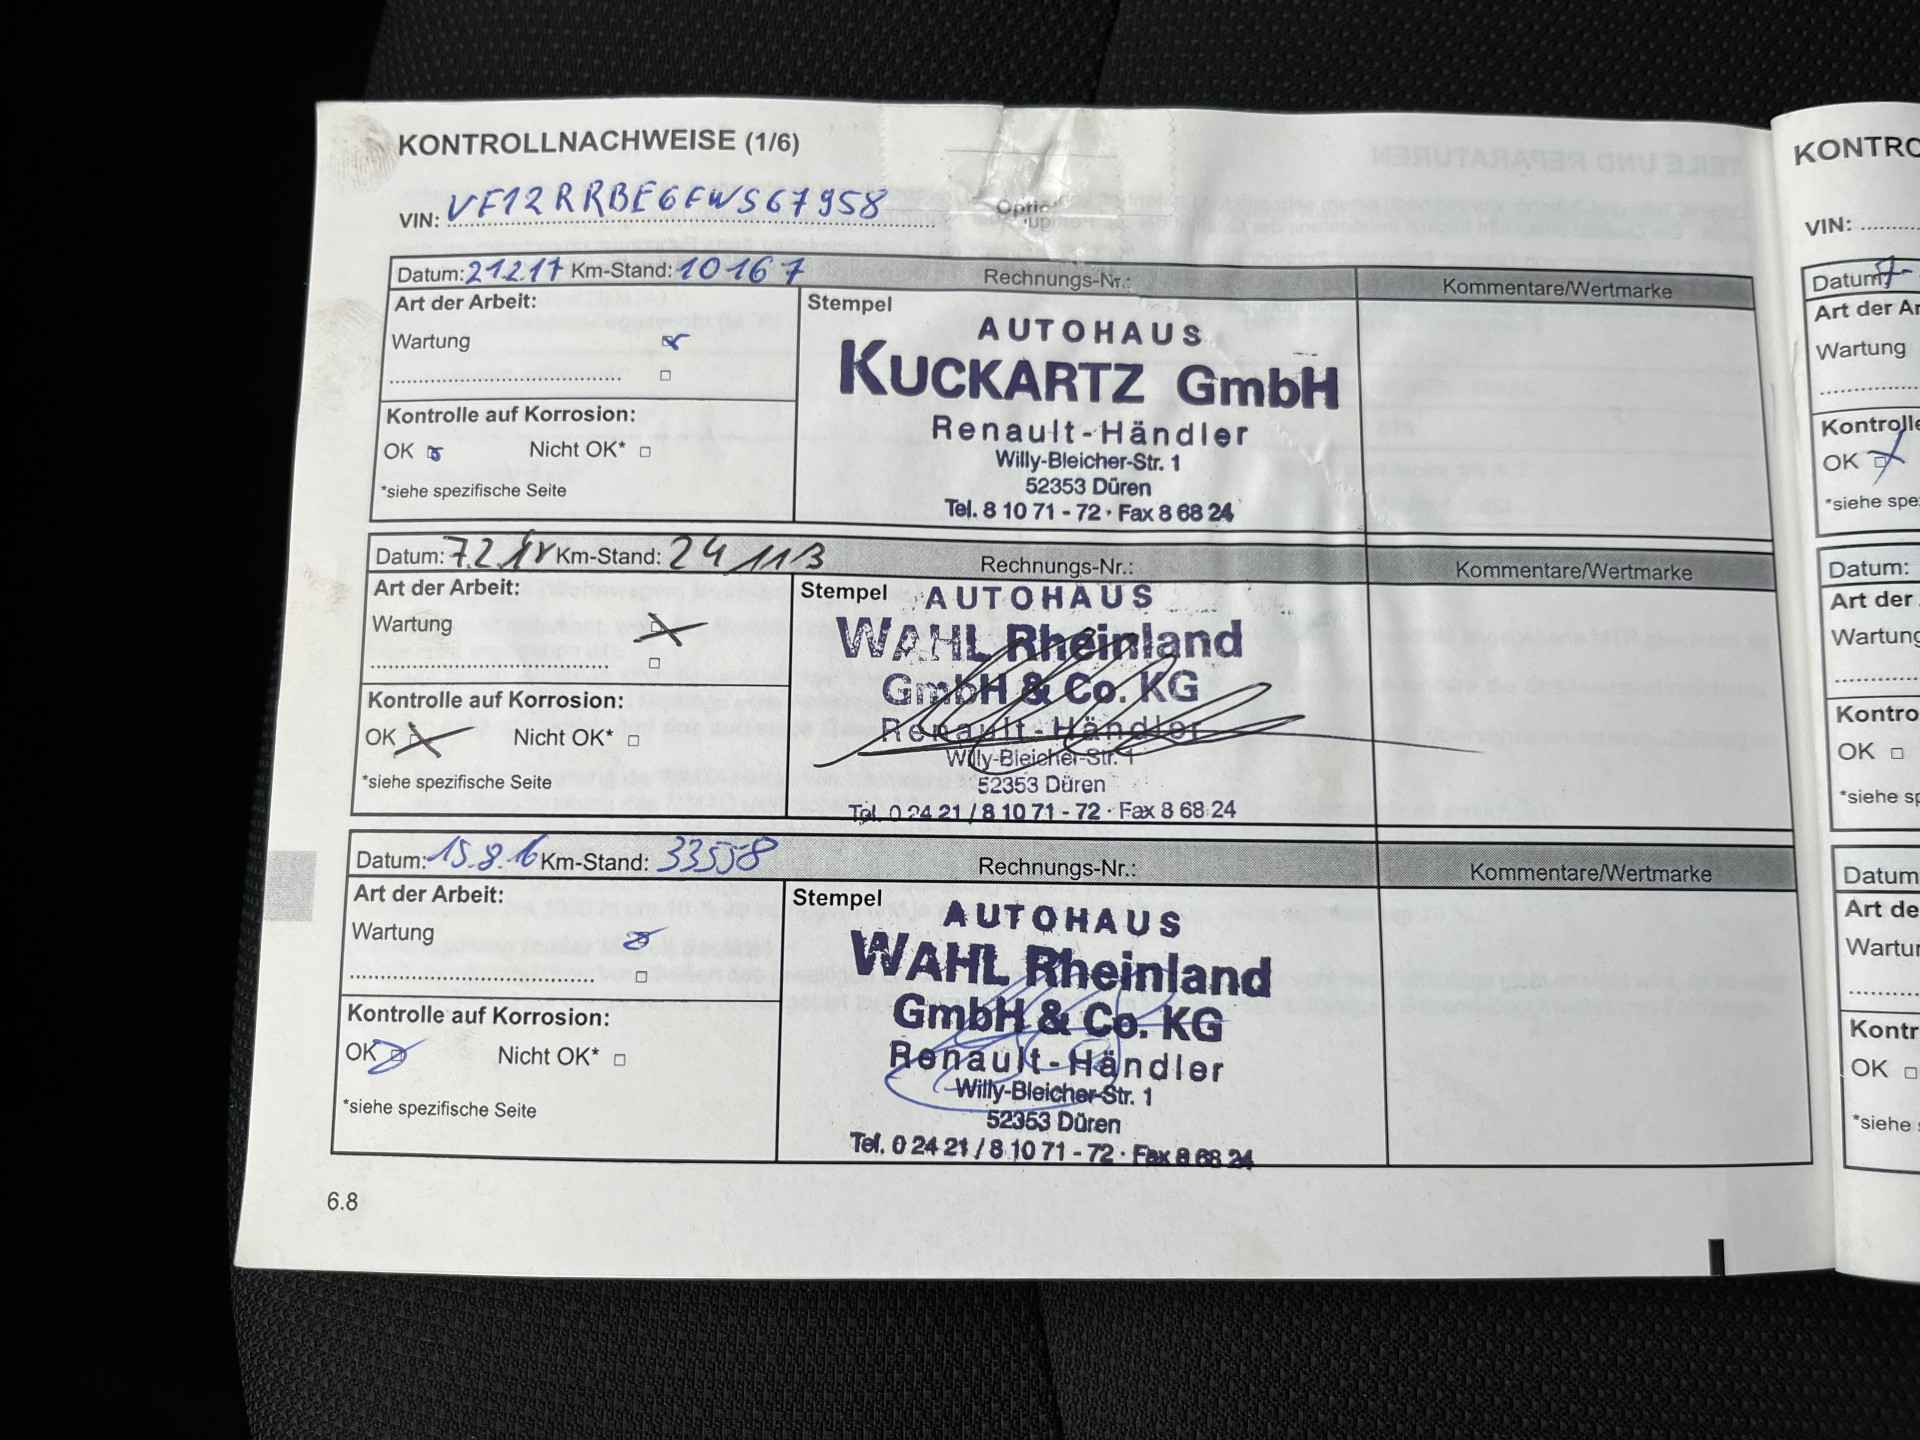 KONTROLLNACHWEISE (1/6)
VIN: VF12RRBE6FWS67958
Datum: 21.2.17 Km-Stand: 10167 Rechnungs-Nr.: Kommentare/Wertmarke
Art der Arbeit:
Wartung
Kontrolle auf Korrosion:
OK Nicht OK*
*siehe spezifische Seite
Stempel
AUTOHAUS
KUCKARTZ GmbH
Renault-Händler
Willy-Bleicher-Str. 1
52353 Düren
Tel. 8 10 71 - 72 · Fax 8 68 24
Datum: Km-Stand: 24113 Rechnungs-Nr.: Kommentare/Wertmarke
Art der Arbeit:
Wartung
Kontrolle auf Korrosion:
OK Nicht OK*
*siehe spezifische Seite
Stempel
AUTOHAUS
WAHL Rheinland
GmbH & Co. KG
Renault-Händler
Willy-Bleicher-Str. 1
52353 Düren
Tel. 0 24 21 / 8 10 71 - 72 · Fax 8 68 24
Datum: 15.8.16 Km-Stand: 33558 Rechnungs-Nr.: Kommentare/Wertmarke
Art der Arbeit:
Wartung
Kontrolle auf Korrosion:
OK Nicht OK*
*siehe spezifische Seite
Stempel
AUTOHAUS
WAHL Rheinland
GmbH & Co. KG
Renault-Händler
Willy-Bleicher-Str. 1
52353 Düren
Tel. 0 24 21 / 8 10 71 - 72 · Fax 8 68 24
6.8
KONTRO
VIN:
Datum
Art der Ar
Wartung
Kontrolle
OK
*siehe spe
Datum:
Art der
Wartung
Kontro
OK
*siehe sp
Datum
Art de
Wartur
Kontr
OK
*siehe